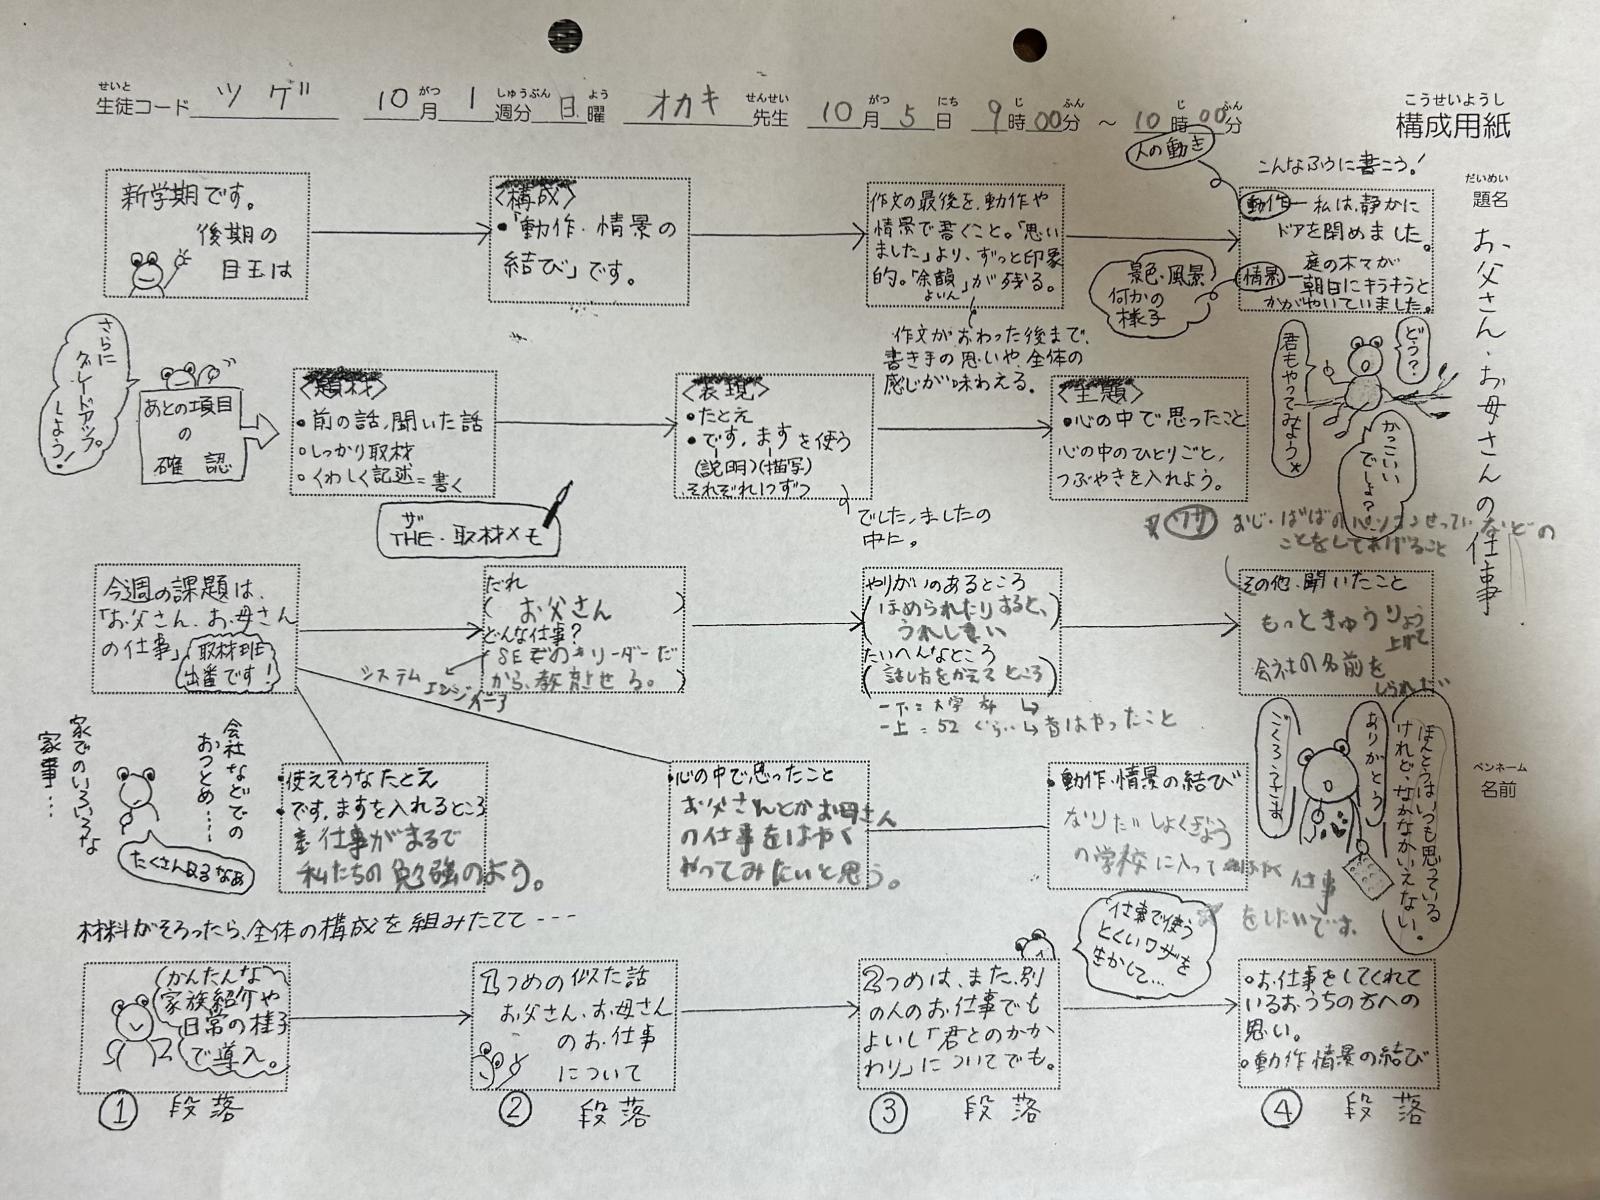 せいと がつ しゅうぶん よう せんせい がつ にち じ ふん じ ふん
生徒コード ツゲ 10月1週分日曜 オカキ先生 10月5日 9時00分 ～ 10時00分
こうせいようし
構成用紙
だいめい
題名
お父さん・お母さんの仕事
ペンネーム
名前
新学期です。
後期の
目玉は
〈構成〉
•「動作・情景の
結び」です。
作文の最後を、動作や
情景で書くこと。「思い
ました」より、ずっと印象
的。「余韻」が残る。
よいん
作文がおわった後まで、
書き手の思いや、全体の
感じが味わえる。
人の動き
こんなふうに書こう！
動作─私は、静かに
ドアを閉めました。
情景─庭の木々が
朝日にキラキラと
かがやいていました。
景色・風景
何かの
様子
どう？
君もやってみよう
かっこいい
でしょ？
さらに
グレードアップ
しよう！
あとの項目
の
確認
〈題材〉
•前の話、聞いた話
•しっかり取材
•くわしく記述＝書く
ザ
THE・取材メモ
〈表現〉
•たとえ
•です、ますを使う
(説明)(描写)
それぞれ1つずつ
でした、ましたの
中に。
〈主題〉
•心の中で思ったこと
心の中のひとりごと、
つぶやきを入れよう。
ワザ おじ・ばばのパソコンせっていなどの
ことをしてあげること
今週の課題は、
「お父さん、お母さん
の仕事」
取材班
出番です！
だれ
( お父さん )
どんな仕事？
システム エンジニア
やりがいのあるところ
(ほめられたりすると、
うれしい
たいへんなところ
(話し方をかえるところ)
その他、聞いたこと
もっときゅうりょう
上げて
会社の名前を
家でのいろいろな
家事…
会社などでの
おつとめ……
たくさんあるなあ
•使えそうなたとえ
•です、ますを入れるところ
仕事がまるで
私たちの勉強のよう。
•心の中で思ったこと
お父さんとかお母さん
の仕事をはやく
やってみたいと思う。
•動作・情景の結び
なりたいしょくぎょう
の学校に入って 仕事
をしたいです。
ごくろうさま
ありがとう
ほんとうはいつも思っている
けれど、なかなかいえない。
仕事で使う
とくいワザを
生かして…
材料がそろったら、全体の構成を組みたてて---
かんたんな
家族紹介や
日常の様子
で導入。
① 段落
1つめの似た話
お父さん、お母さん
のお仕事
について
② 段落
2つめは、また、別
の人のお仕事でも
よいし「君とのかか
わり」についてでも。
③ 段落
•お仕事をしてくれて
いるおうちの方への
思い。
•動作情景の結び
④ 段落